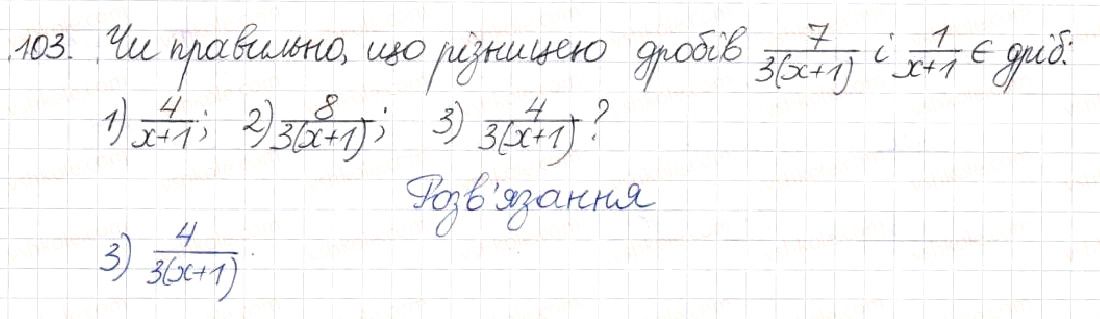 103. Чи правильно, що різницею дробів 7/3(x+1) і 1/x+1 є дріб:
1) 4/x+1; 2) 8/3(x+1); 3) 4/3(x+1)?
Розв'язання
3) 4/3(x+1)